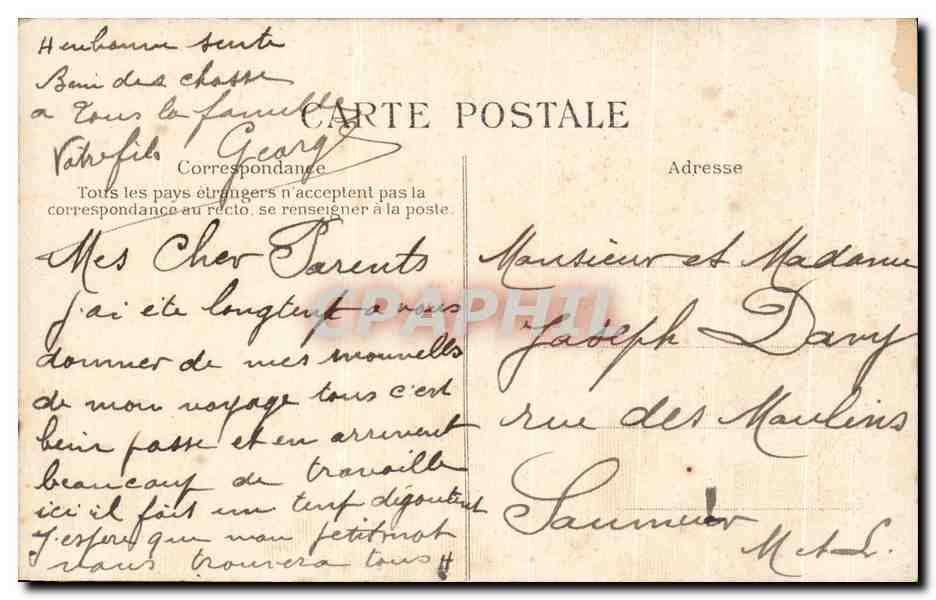 H en bonne sente
Bein des chosse
a Tous la famille
Votre fils Georg
CARTE POSTALE
Correspondance
Tous les pays étrangers n'acceptent pas la
correspondance au recto, se renseigner à la poste.
Mes Cher Parents
j'ai éte longtent a vous
donner de mes nouvells
de mon voyage tous c'est
bein passe et en arrivent
beaucoup de travaille
ici il fait un temp dégoutent
J'espere que mon petit mot
vous trouvera tous H
Adresse
Monsieur et Madame
Joseph Davy
rue des Moulins
Saumur
M et L.
CPAPHIL